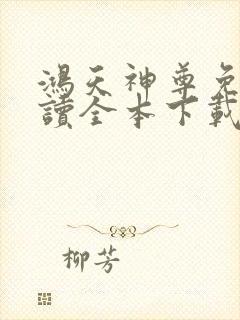 鴻天神尊免
讀全本下載
柳芳